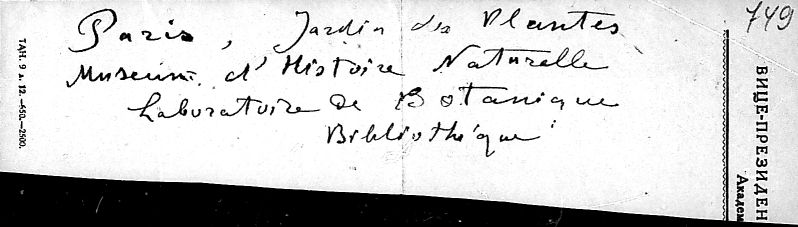 749
Paris, Jardin des Plantes
Museum d'Histoire Naturelle
Laboratoire de Botanique
Bibliothèque
ТАН. 9 д. 12.—650.—2500.
ВИЦЕ-ПРЕЗИДЕН
Академ